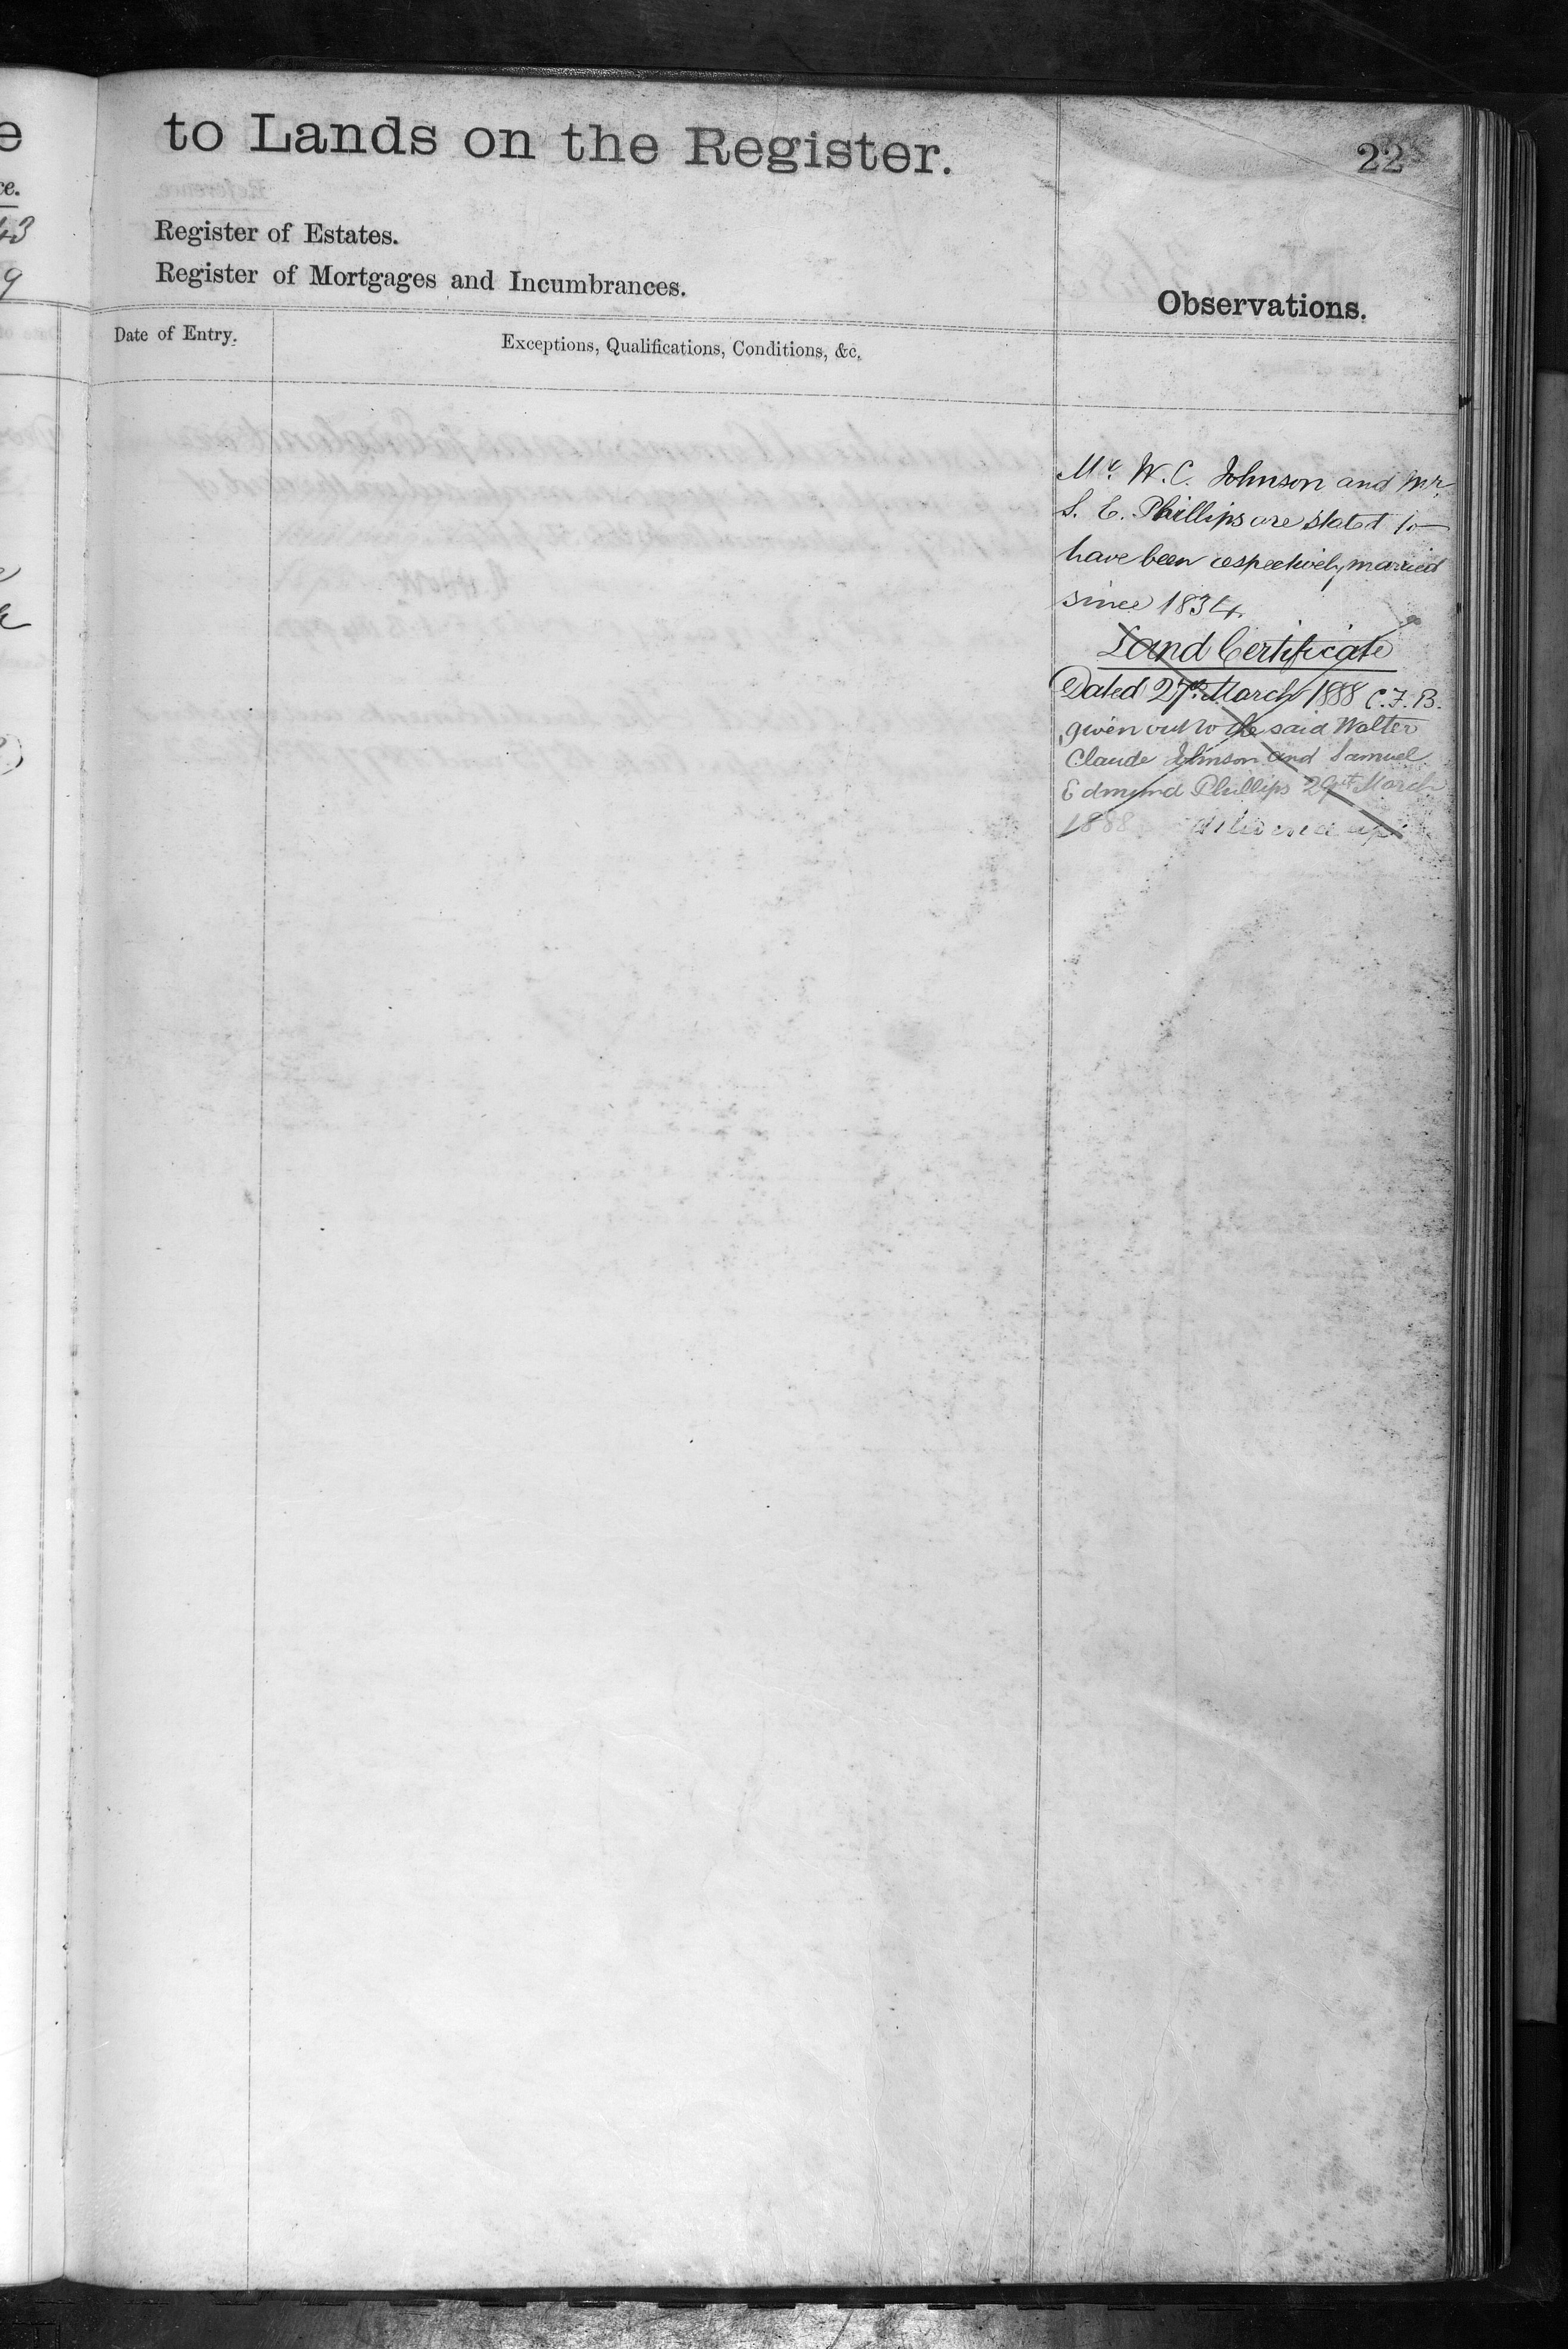 to Lands on the Register.
22
Register of Estates.
Register of Mortgages and Incumbrances.
Observations.
Date of Entry.
Exceptions, Qualifications, Conditions, &c.
Mr. W. C. Johnson and Mr.
S. E. Phillips are stated to
have been respectively married
since 1834.
Land Certificate
Dated 27th March 1888 C.F.B.
given out to the said Walter
Claude Johnson and Samuel
Edmund Phillips 29th March
1888
e
ce.
43
9